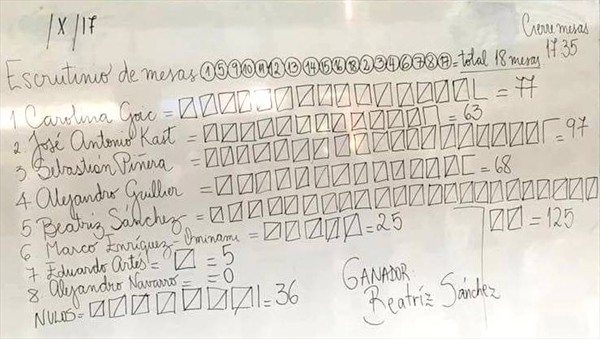 /X/17
Cierre mesas
17:35
Escrutinio de mesas ① ⑤ ⑨ ⑩ ⑪ ⑫ ⑬ ⑭ ⑮ ⑯ ⑱ ② ③ ④ ⑥ ⑦ ⑧ ⑰ = total 18 mesas
1 Carolina Goic = = 77
2 José Antonio Kast = = 63
3 Sebastián Piñera = = 97
4 Alejandro Guillier = = 68
5 Beatriz Sánchez = = 125
6 Marco Enríquez-Ominami = = 25
7 Eduardo Artés = = 5
8 Alejandro Navarro = = 0
NULOS = = 36
GANADOR:
Beatriz Sánchez